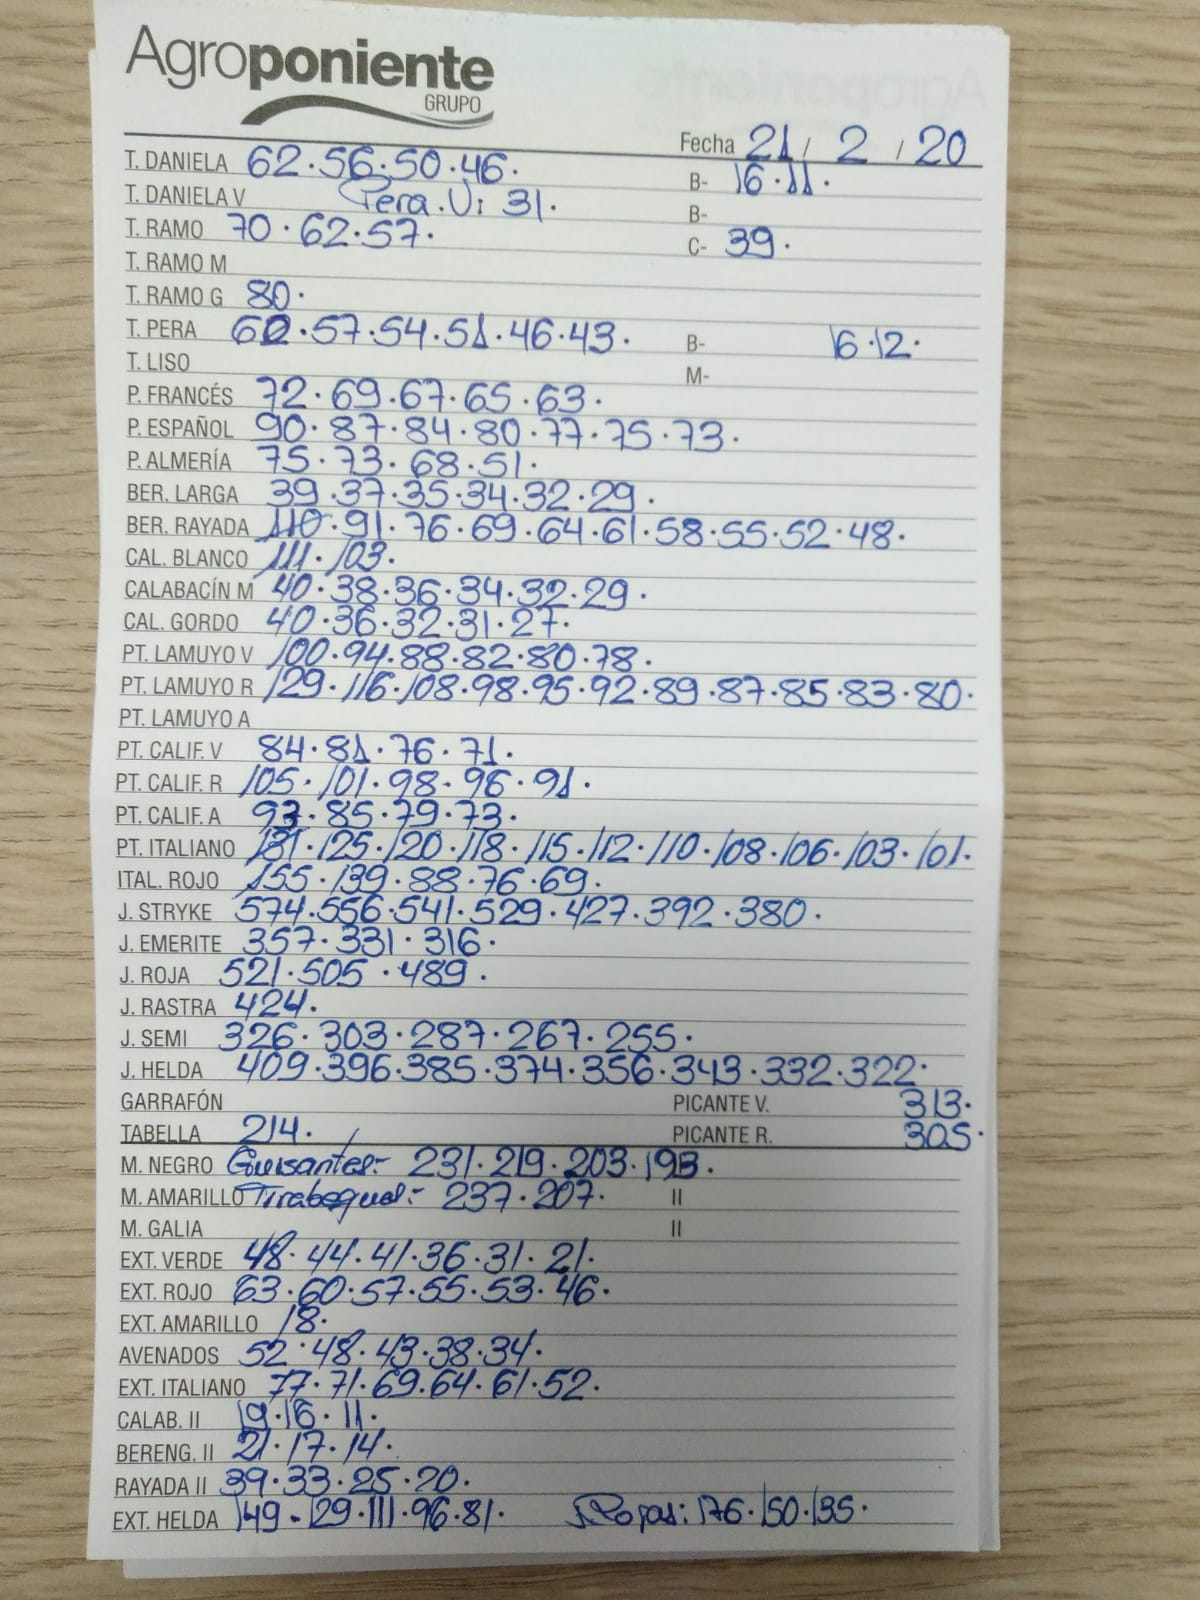 Agroponiente
GRUPO
Fecha 21 / 2 / 20
T. DANIELA 62·56·50·46· B- 16·11·
T. DANIELA V Pera. V: 31· B-
T. RAMO 70·62·57· C- 39·
T. RAMO M
T. RAMO G 80·
T. PERA 60·57·54·51·46·43· B- 16·12·
T. LISO M-
P. FRANCÉS 72·69·67·65·63·
P. ESPAÑOL 90·87·84·80·77·75·73·
P. ALMERÍA 75·73·68·51·
BER. LARGA 39·37·35·34·32·29·
BER. RAYADA 110·91·76·69·64·61·58·55·52·48·
CAL. BLANCO 111·103·
CALABACÍN M 40·38·36·34·32·29·
CAL. GORDO 40·36·32·31·27·
PT. LAMUYO V 100·94·88·82·80·78·
PT. LAMUYO R 129·116·108·98·95·92·89·87·85·83·80·
PT. LAMUYO A
PT. CALIF. V 84·81·76·71·
PT. CALIF. R 105·101·98·96·91·
PT. CALIF. A 85·79·73·
PT. ITALIANO 131·125·120·118·115·112·110·108·106·103·101·
ITAL. ROJO 155·139·88·76·69·
J. STRYKE 574·556·541·529·427·392·380·
J. EMERITE 357·331·316·
J. ROJA 521·505·489·
J. RASTRA 424·
J. SEMI 326·303·287·267·255·
J. HELDA 409·396·385·374·356·343·332·322·
GARRAFÓN PICANTE V. 313·
TABELLA 214· PICANTE R. 305·
M. NEGRO Guisantes:- 231·219·203·193·
M. AMARILLO Tirabeques:- 237·207· II
M. GALIA II
EXT. VERDE 48·44·41·36·31·21·
EXT. ROJO 63·60·57·55·53·46·
EXT. AMARILLO 18·
AVENADOS 52·48·43·38·34·
EXT. ITALIANO 77·71·69·64·61·52·
CALAB. II 19·16·11·
BERENG. II 21·17·14·
RAYADA II 39·33·25·20·
EXT. HELDA 149-129·111·96·81· J Rojas: 176·150·135·